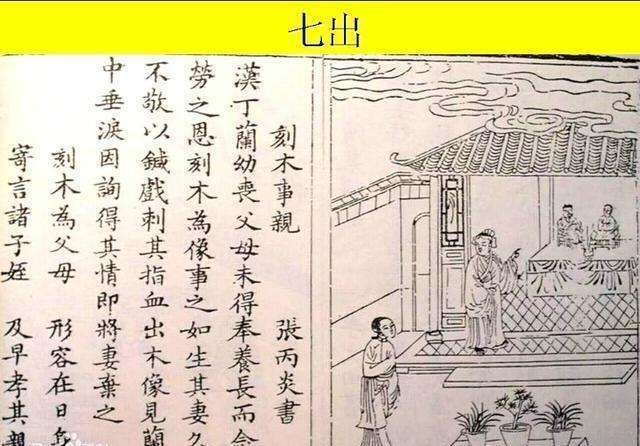 七出
刻木事親 張丙炎書
漢丁蘭幼喪父母未得奉養長而念
勞之恩刻木為像事之如生其妻久
不敬以鍼戲刺其指血出木像見蘭
中垂淚因詢得其情即將妻棄之
刻木為父母 形容在日
寄言諸子姪 及早孝其親